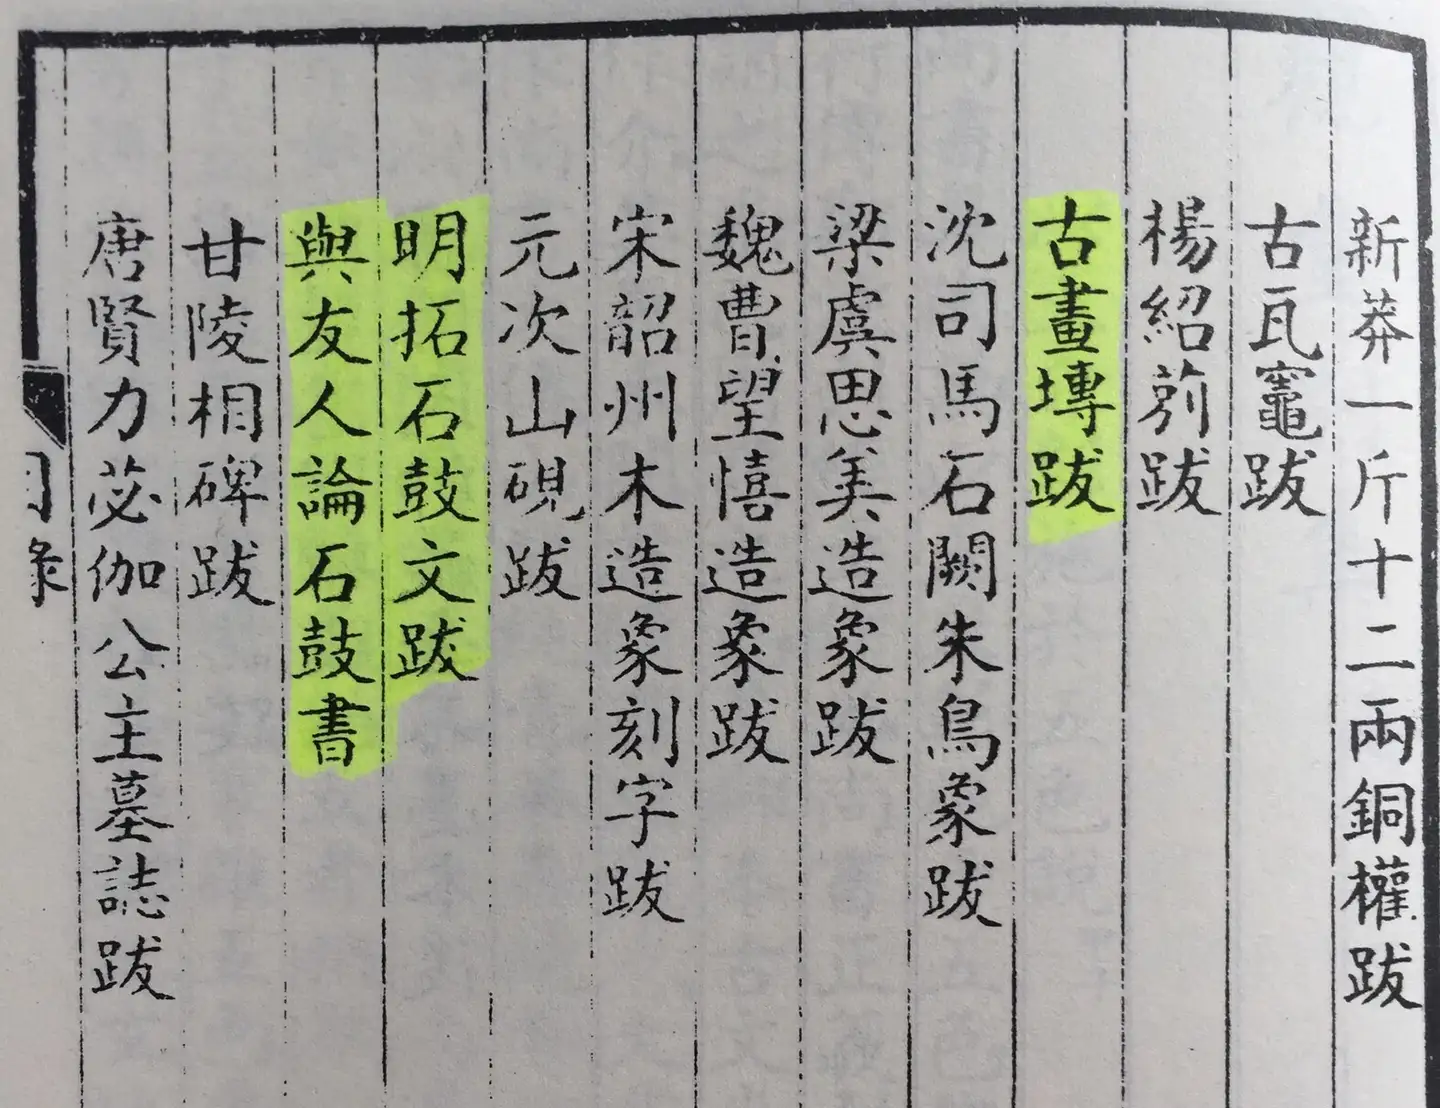 新莽一斤十二兩銅權跋
古瓦竈跋
楊紹莂跋
古畫塼跋
沈司馬石闕朱鳥象跋
梁虞思美造象跋
魏曹望憘造象跋
宋韶州木造象刻字跋
元次山硯跋
明拓石鼓文跋
與友人論石鼓書
甘陵相碑跋
唐賢力苾伽公主墓誌跋
目錄